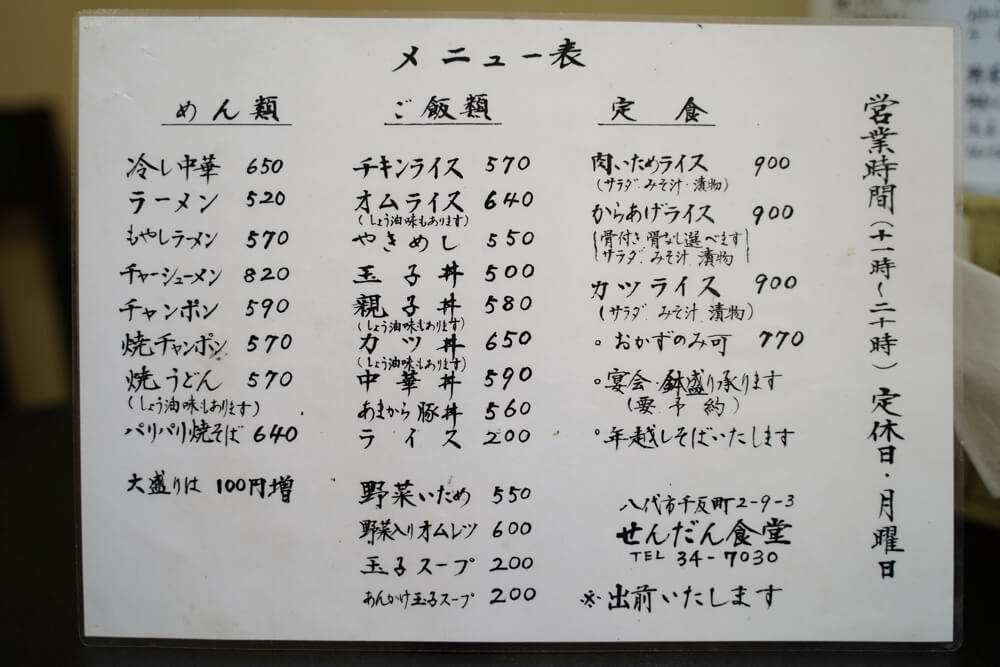 メニュー表
めん類
冷し中華 650
ラーメン 520
もやしラーメン 570
チャーシューメン 820
チャンポン 590
焼チャンポン 570
焼うどん 570
(しょう油味もあります)
パリパリ焼そば 640
大盛りは 100円増
ご飯類
チキンライス 570
オムライス 640
(しょう油味もあります)
やきめし 550
玉子丼 500
親子丼 580
(しょう油味もあります)
カツ丼 650
(しょう油味もあります)
中華丼 590
あまから豚丼 560
ライス 200
野菜いため 550
野菜入りオムレツ 600
玉子スープ 200
あんかけ玉子スープ 200
定食
肉いためライス 900
(サラダ.みそ汁.漬物)
からあげライス 900
骨付き骨なし選べます
サラダ.みそ汁 漬物
カツライス 900
(サラダ.みそ汁.漬物)
・おかずのみ可 770
・宴会・鉢盛り承ります
(要予約)
・年越しそばいたします
八代市千反町2-9-3
せんだん食堂
TEL 34-7030
※出前いたします
営業時間(十一時〜二十時)定休日・月曜日